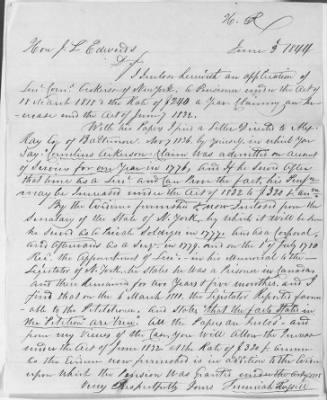 H. R
June 3rd 1844
Hon J. L. Edwards
I Enclose herewith an application of
Lieu. Corn. Ackerson of New York, to Pension under the Act of
18 March 1818 at the Rate of $240 a Year Claiming an In-
crease under the Act of June 7 1832.
With his Papers I find a Letter Directed to
Ray Esq of Baltimore Nov 7 1836. by yourself, in which You
Say. Cornelius Ackerson Claim was admitted on account
of Services for one Year in 1776, and if he served after
that time as a Lieu and Can Prove the fact, his Pension
may be Increased under the Act of 1832 to $320
By the Evidence furnished now Enclosed from the
Secretary of the State of N. York, by which it will be seen
he served as a Private Soldier in 1777. and as a Corporal,
and afterwards as a Serg. in 1779. and on the 1st of July 1780
Rec. the Appointment of Lieu. in his Memorial to the
Legislator of N. York, he states he was a Prisoner in Canada
and there Remained for two Years & five months, and I
find that on the 6 March 1811. the Legislator Reported favor-
able to the Petitioner. and States that the facts Stated
in the Petition are true. All the Papers are Enclosed and
from my Views of the Case, you will allow the Increase
under the Act of June 1832 at the Rate of $320 annum
as the Evidence now furnished is in addition to the
upon which the Pension was Granted under the Act of 1818
Very Respectfully Yours Jeremiah Russell